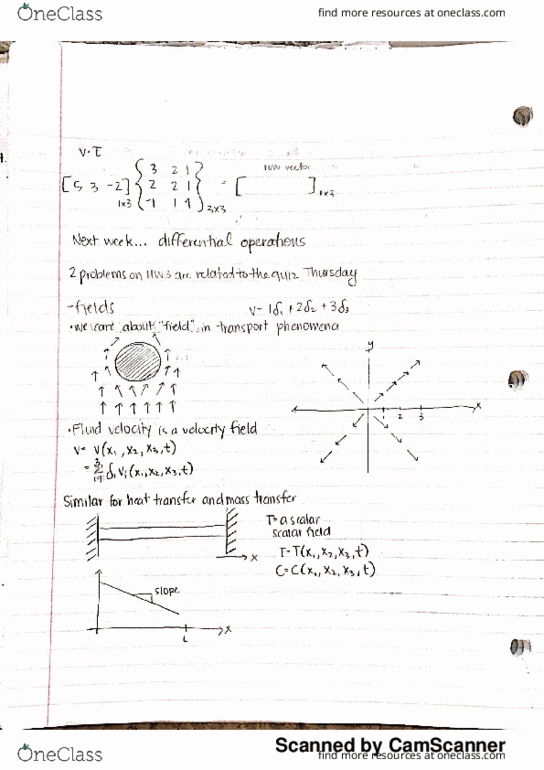 OneClass
find more resources at oneclass.com
V·τ
row vector
[5, 3, -2]1x3 {3 2 1
2 2 1
-1 1 4}3x3 = [ ]1x3
Next week... differential operations
2 problems on HW3 are related to the quiz Thursday
-fields
V= 1δ1 + 2δ2 + 3δ3
• we care about "field" in transport phenomena
y
x
1 2 3
• Fluid velocity is a velocity field
V= V(x1, x2, x3, t)
= 3Σi=1 δi Vi (x1, x2, x3, t)
Similar for heat transfer and mass transfer
T= a scalar
scalar field
T=T(x1, x2, x3, t)
C=C(x1, x2, x3, t)
x
slope
L
x
Scanned by CamScanner
OneClass
find more resources at oneclass.com